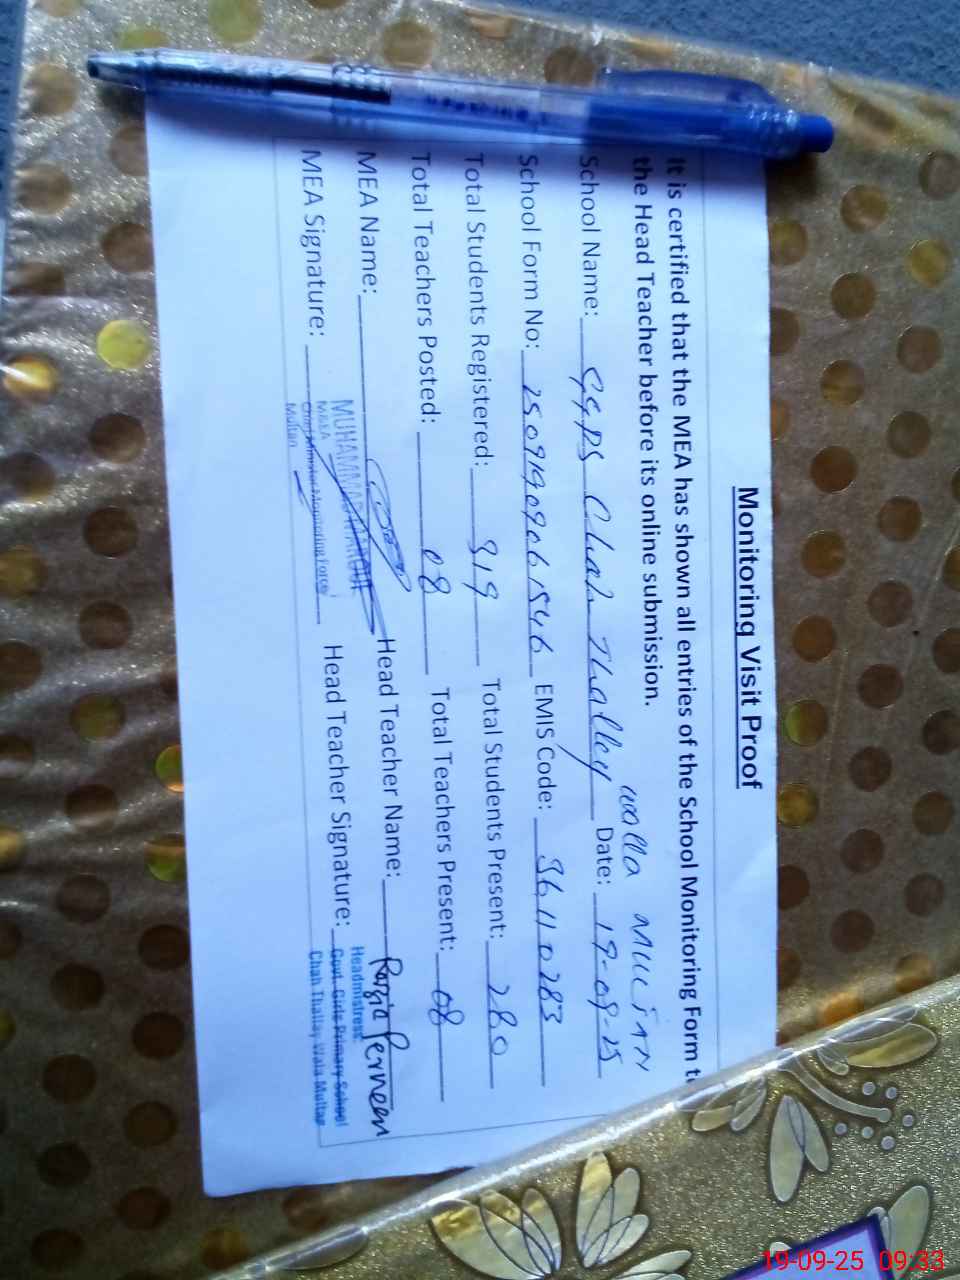 Monitoring Visit Proof
It is certified that the MEA has shown all entries of the School Monitoring Form t
the Head Teacher before its online submission.
walla Multan
School Name: GGPS Chah Thalley Date: 19-09-25
School Form No: 25091909061546 EMIS Code: 36110283
Total Students Registered: 319 Total Students Present: 280
Total Teachers Posted: 08 Total Teachers Present: 08
MEA Name: Head Teacher Name: Razia Perneen
MEA Signature: Head Teacher Signature:
MUHAMMAD
M&EA
Chief Minister Monitoring Force
Multan
Headmistress
Govt. Girls Primary School
Chah Thalley Wala Multan
19-09-25 09:33